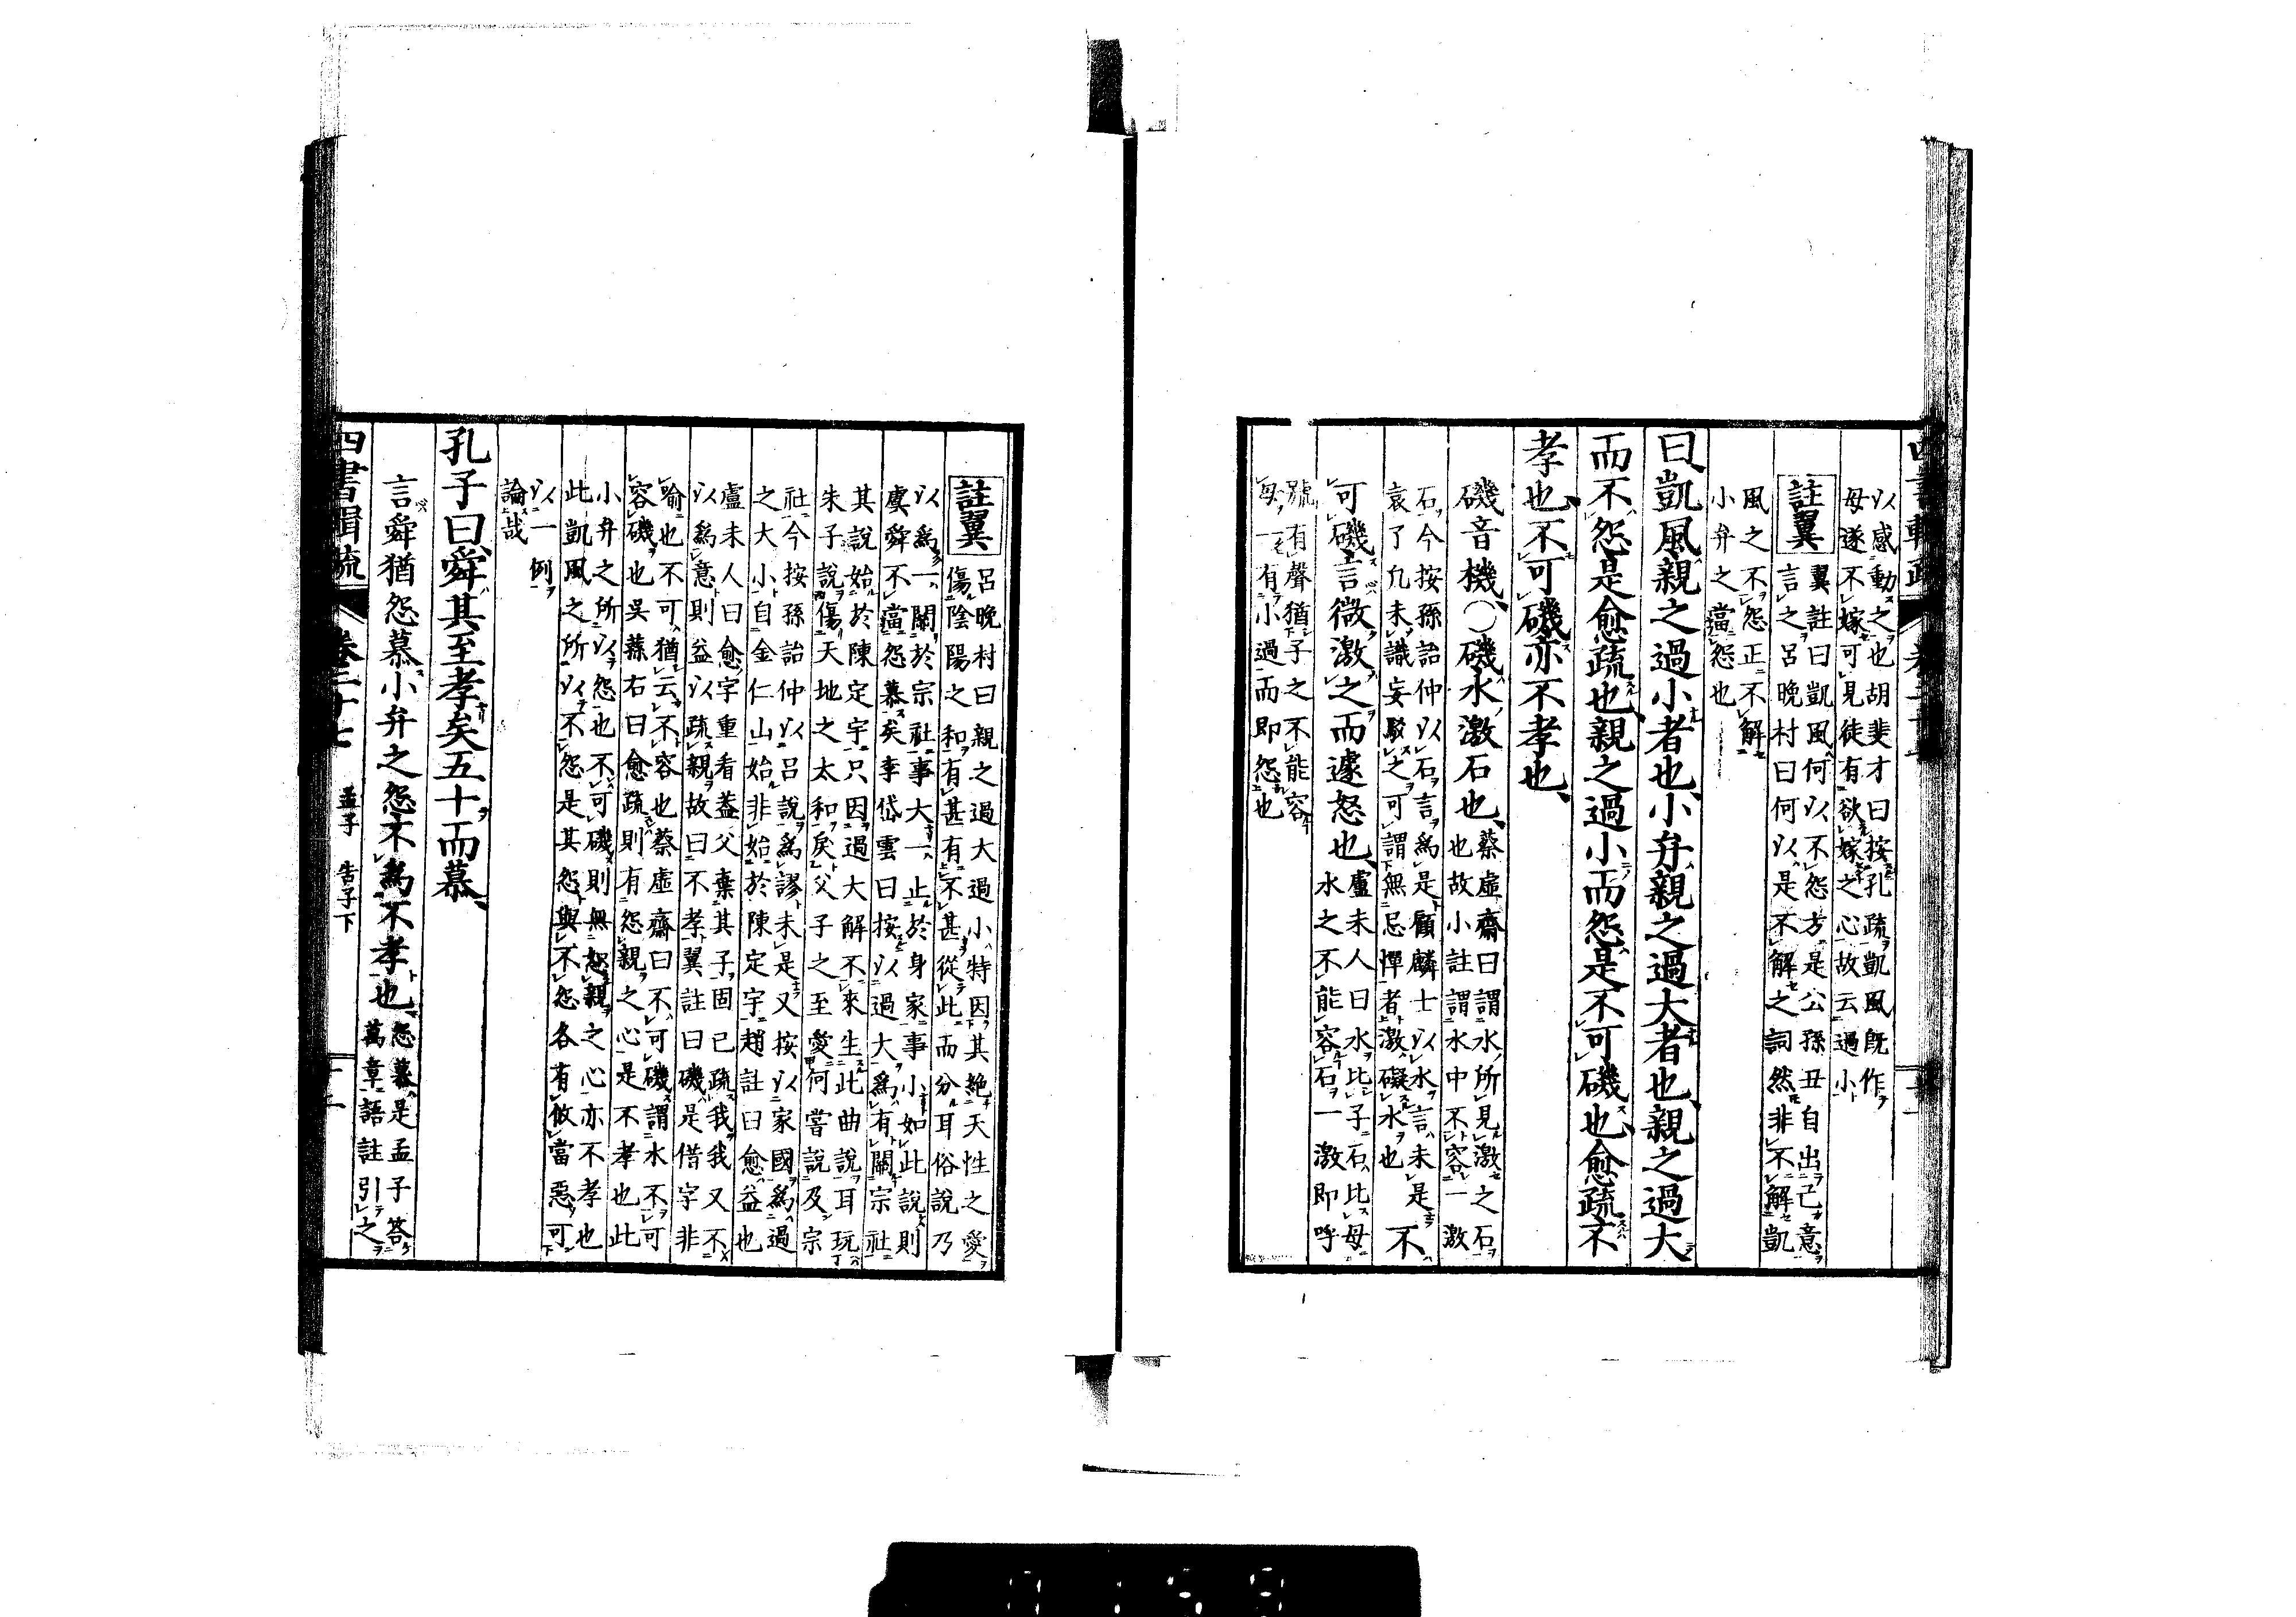 以感動之也胡斐才曰按孔疏凱風既作
母遂不嫁可見徒有欲嫁之心故云過小
註翼
翼註曰凱風何以不怨方是公孫丑自出己意
言之呂晚村曰何以是不解之詞然非不解凱
風之不怨正不解
小弁之當怨也
曰凱風親之過小者也小弁親之過大者也親之過大
而不怨是愈疏也親之過小而怨是不可磯也愈疏不
孝也不可磯亦不孝也
磯音機○磯水激石也
蔡虛齋曰謂水所見激之石
也故小註謂水中不容一激
石今按孫詒仲以石言為是顧麟士以水言未是
哀了凡未識妄駁之可謂無忌憚者激礙水也
不
可磯言微激之而遽怒也
盧未人曰水比子石比母
水之不能容石一激即呼
號有聲猶子之不能容
母一有小過而即怨也
註翼
呂晚村曰親之過大過小特因其絕天性之愛
傷陰陽之和有甚有不甚從此而分耳俗說乃
以為一關於宗社事大一止於身家事小如此說則
虞舜不當怨慕矣李岱雲曰按以過大為有關宗社
其說始於陳定宇只因過大解不來生此曲說耳玩
朱子說傷天地之太和戾父子之至愛何嘗說及宗
社今按孫詒仲以呂說為謬未是又按以家國為過
之大小自金仁山始非始於陳定宇趙註曰愈益也
盧未人曰愈字重看蓋父棄其子固已疏我我又不
以為意則益以疏親故曰不孝翼註曰磯是借字非
喻也不可猶云不容也蔡虛齋曰不可磯謂水不可
容磯也吳蓀右曰愈疏則有怨親之心是不孝也此
小弁之所以怨也不可磯則無恕親之心亦不孝也
此凱風之所以不怨是其怨與不怨各有攸當惡可
以一例
論哉
孔子曰舜其至孝矣五十而慕
言舜猶怨慕小弁之怨不為不孝也
怨慕是孟子答
萬章語註引之
四書輯疏 卷二十七 孟子 告子下